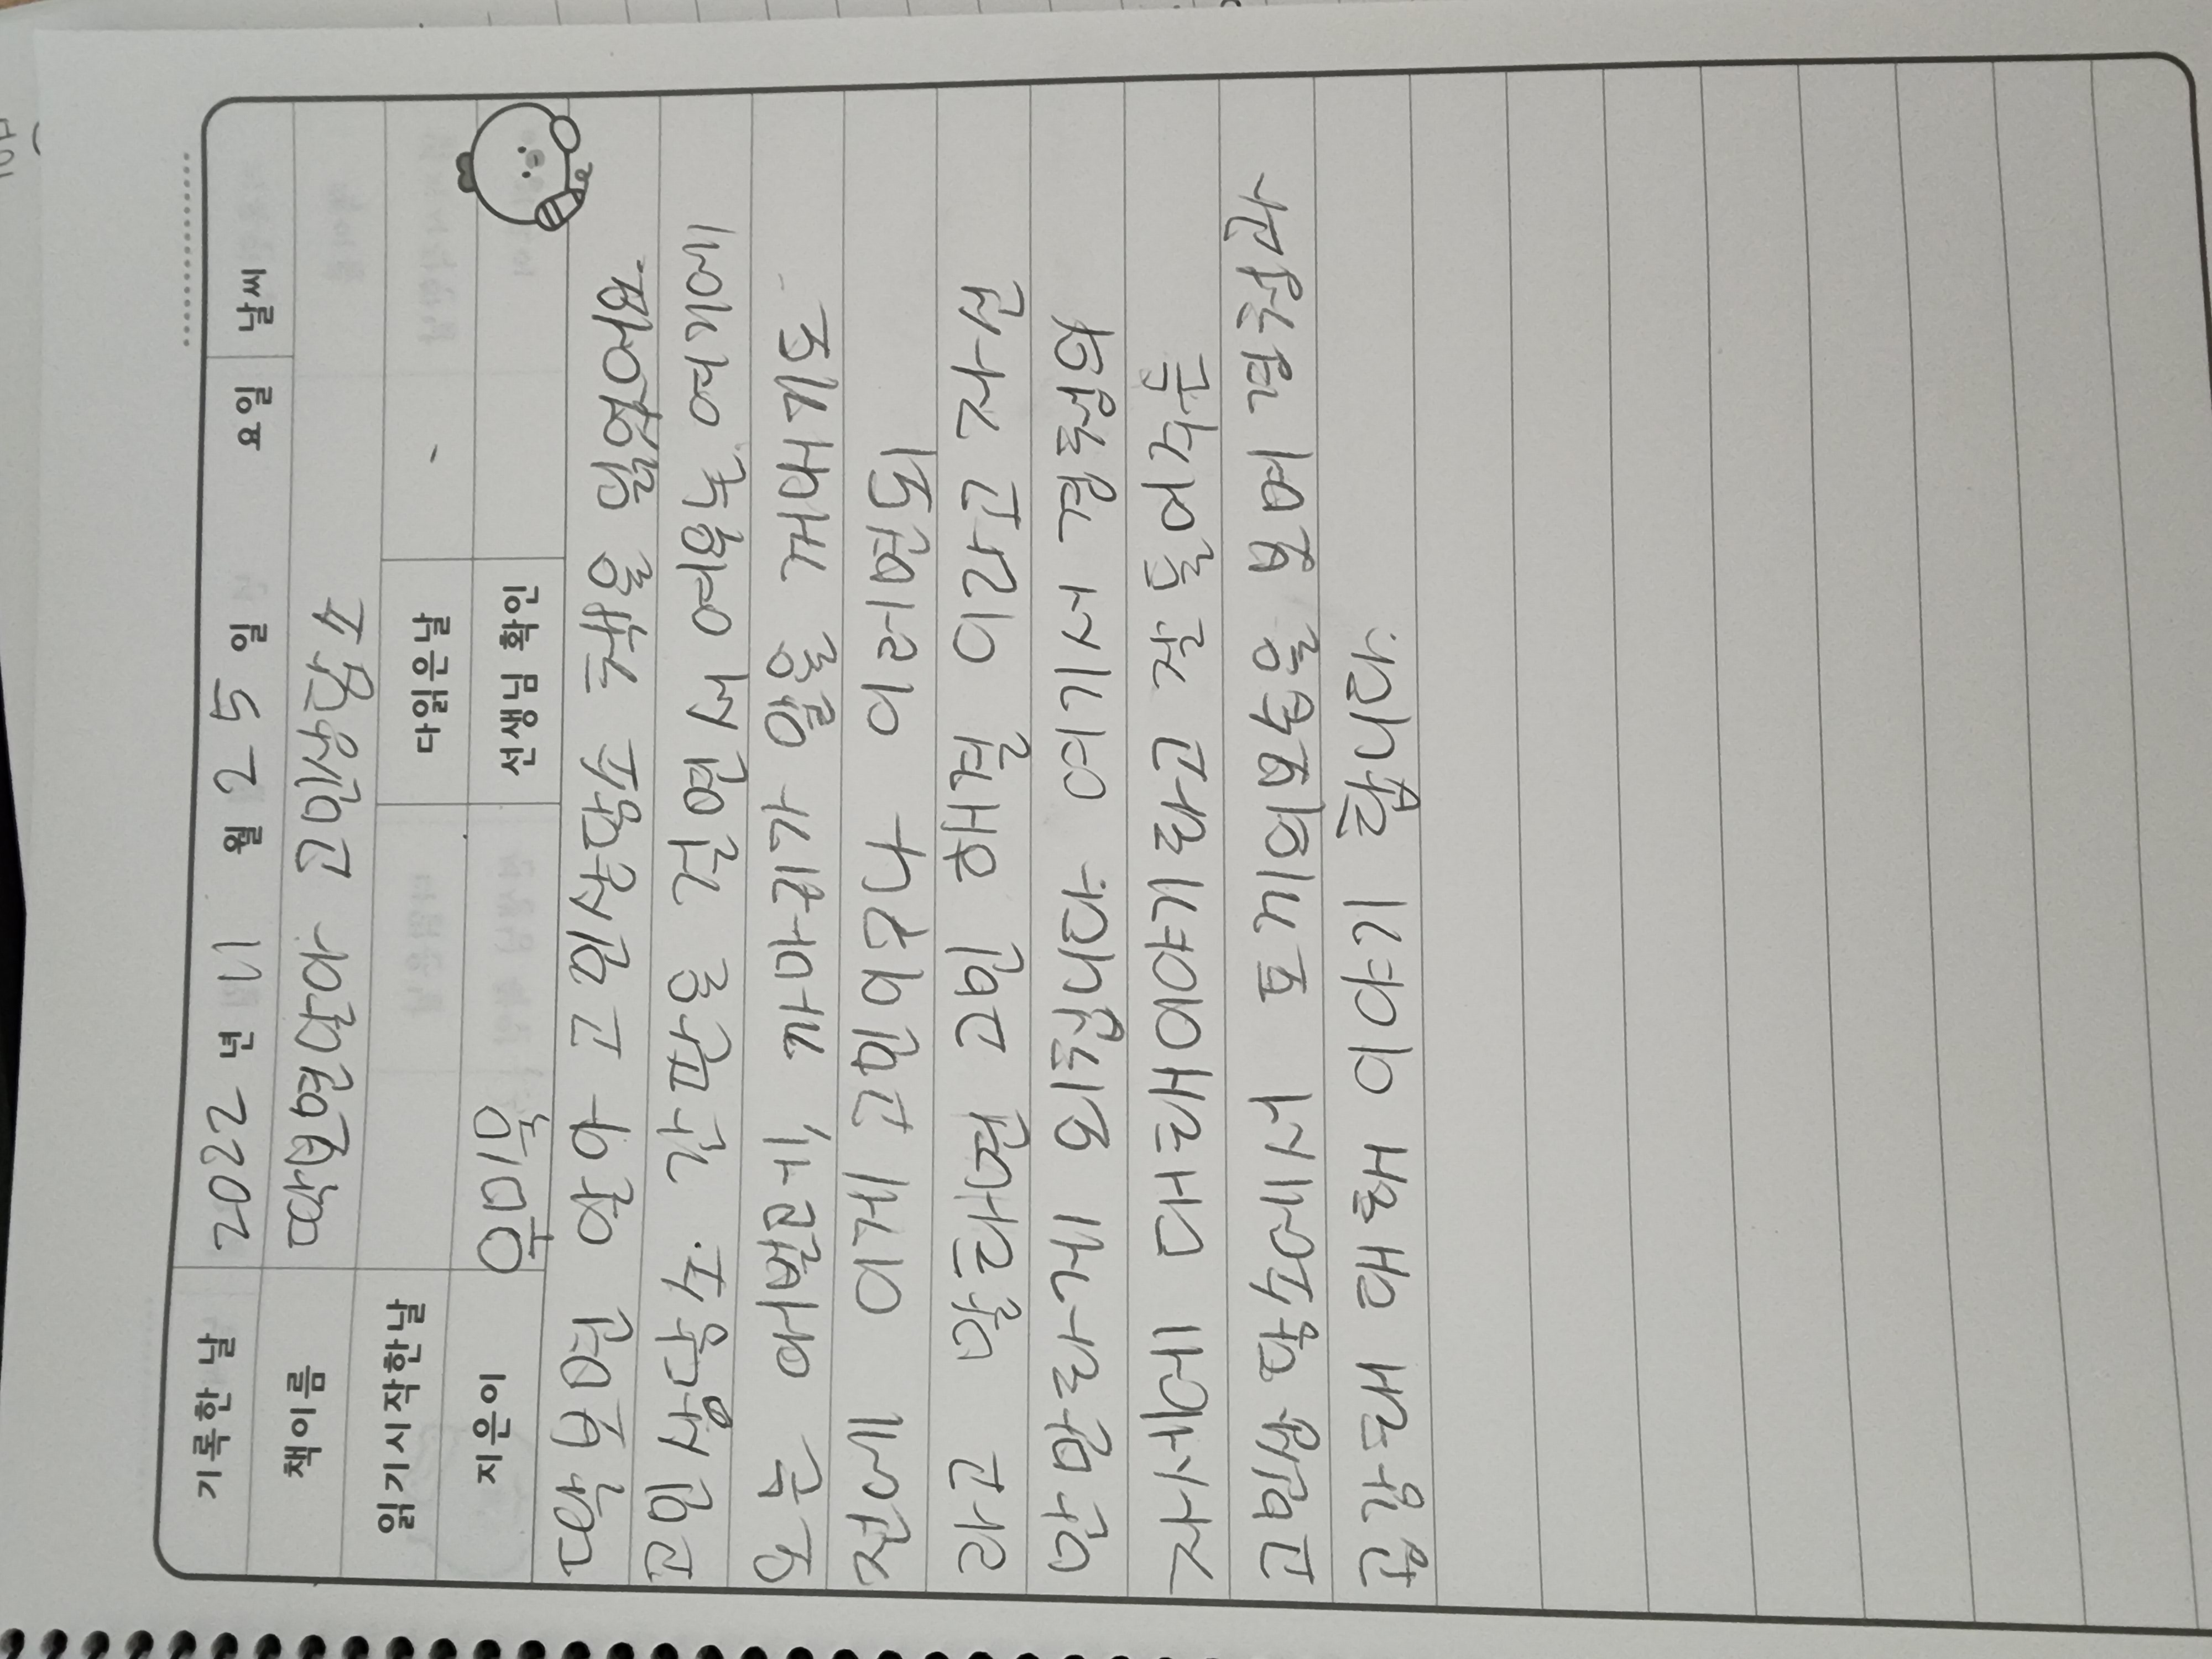 기록한 날 2022 년 11 월 25 일 요일 날씨
책이름 딱보면알아 고민상담소
읽기시작한날 다읽은날 -
지은이 우미욱 선생님 확인
딱 보면 알아 고민상당소 책을 읽었어요.
고민상당소. 간판을 걸면서 여우는 여기에
오는 애벌레, 까마귀가 말을 꺼내기도
전에 이게 고민이구나 이러면되
라고 말하면 고민 해결 이라고 자신
만만하게 외칩니다. 여기서 경청의
자세에 대해이야기하고 잘 들어주는
고민상당소에서 토끼의모습을 보여 경청과
공강해 대해 이야기 합니다.